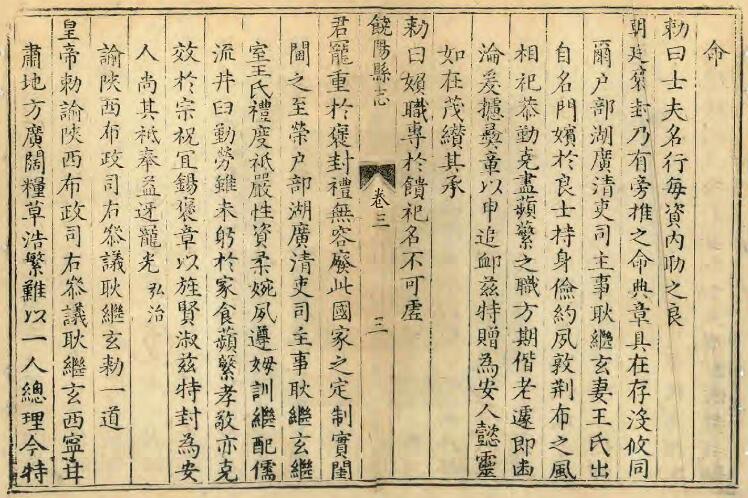 命
勅曰士夫名行毎資內助之良
朝廷褒封乃有旁推之命典章具在存沒攸同
爾户部湖廣清吏司主事耿繼玄妻王氏出
自名門嬪於良士持身儉約夙敦荆布之風
相祀恭勤克盡蘋蘩之職方期偕老遽即幽
淪爰據彝章以申追卹兹特贈為安人懿靈
如在茂纘其承
勅曰嬪職專於饋祀名不可虚
饒陽縣志
卷三
三
君寵重於褒封禮無容廢此國家之定制實閨
閫之至榮户部湖廣清吏司主事耿繼玄繼
室王氏禮度祗嚴性資柔婉夙遵姆訓繼配儒
流井臼勤勞雖未躬於家食蘋蘩孝敬亦克
效於宗祝宜錫褒章以旌賢淑兹特封為安
人尚其祗奉益迓寵光 弘治
諭陝西布政司右叅議耿繼玄勅一道
皇帝勅諭陝西布政司右叅議耿繼玄西寧甘
肅地方廣闊糧草浩繁難以一人總理今特